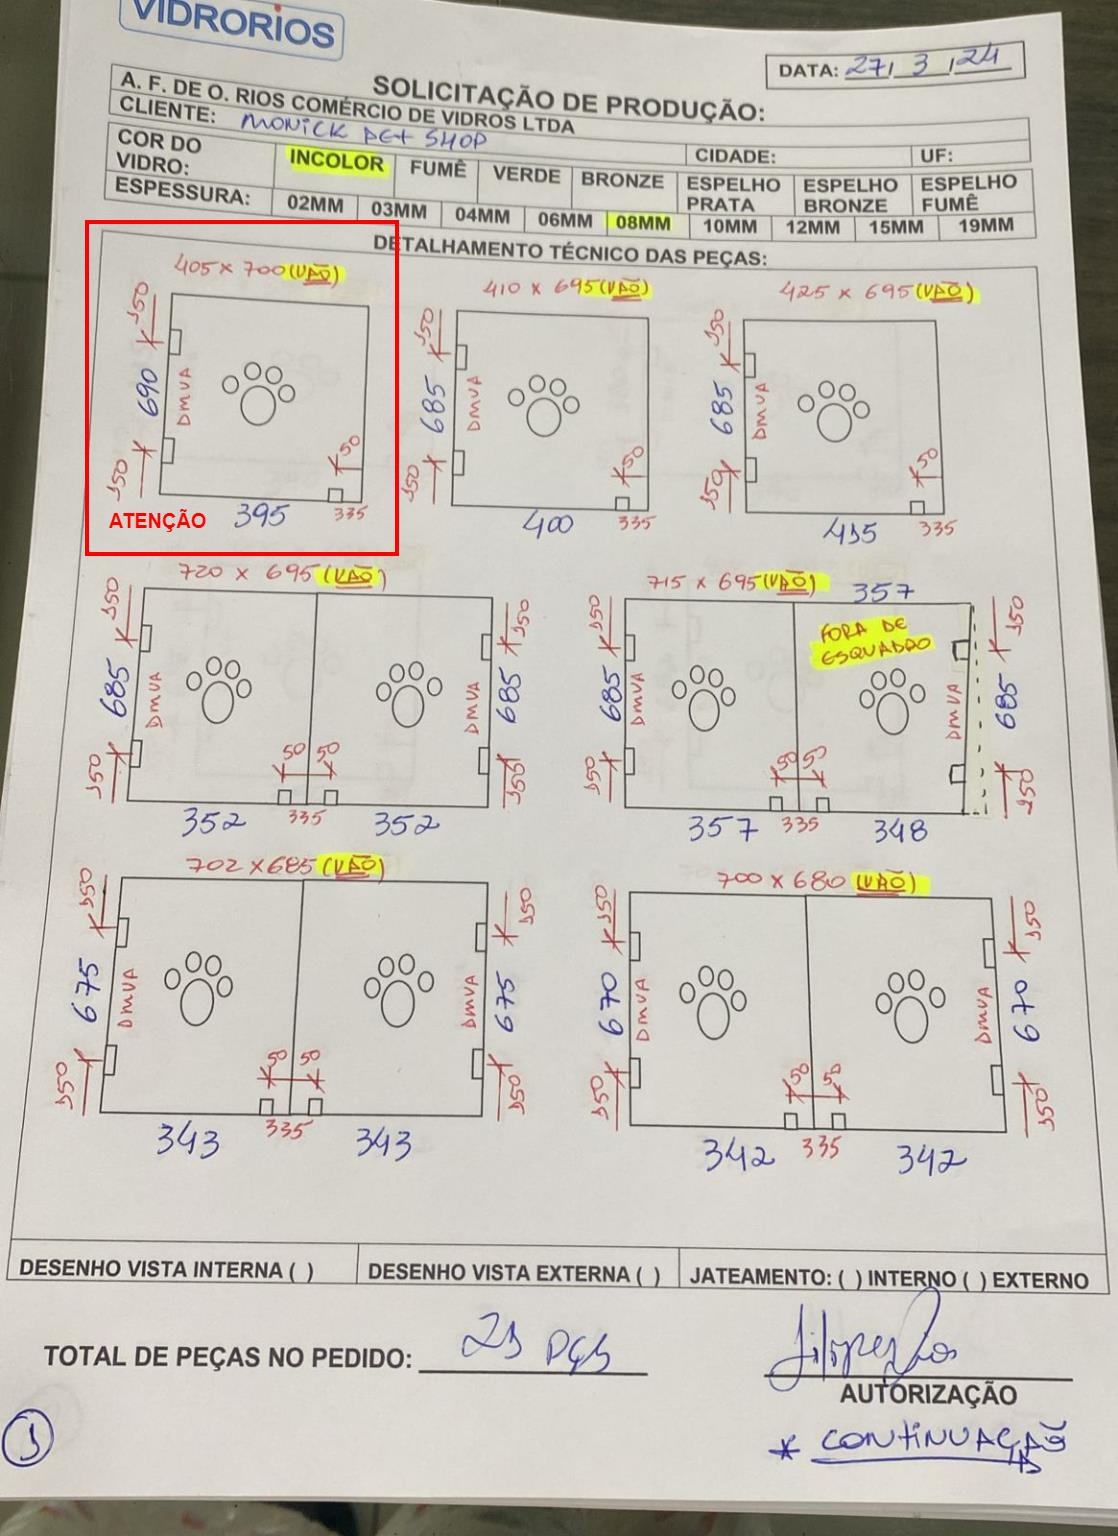 VIDRORIOS
DATA: 27/3/24
SOLICITAÇÃO DE PRODUÇÃO:
A. F. DE O. RIOS COMÉRCIO DE VIDROS LTDA
CLIENTE: MONICK PET SHOP
CIDADE: UF:
COR DO VIDRO: INCOLOR FUMÊ VERDE BRONZE ESPELHO PRATA ESPELHO BRONZE ESPELHO FUMÊ
ESPESSURA: 02MM 03MM 04MM 06MM 08MM 10MM 12MM 15MM 19MM
DETALHAMENTO TÉCNICO DAS PEÇAS:
405 x 700 (VÃO)
150
690
DMVA
150
50
ATENÇÃO
395
335
410 x 695 (VÃO)
150
685
DMVA
150
50
400
335
425 x 695 (VÃO)
150
685
DMVA
150
50
415
335
720 x 695 (VÃO)
150 150
685 DMVA DMVA 685
150 50 50 150
352 335 352
715 x 695 (VÃO)
357
FORA DE
ESQUADRO
150 150
685 DMVA DMVA 685
150 50 50 150
357 335 348
702 x 685 (VÃO)
150 150
675 DMVA DMVA 675
150 50 50 150
343 335 343
700 x 680 (VÃO)
150 150
670 DMVA DMVA 670
150 50 50 150
342 335 342
DESENHO VISTA INTERNA ( ) DESENHO VISTA EXTERNA ( ) JATEAMENTO: ( ) INTERNO ( ) EXTERNO
TOTAL DE PEÇAS NO PEDIDO: 21 PÇS
AUTORIZAÇÃO
* CONTINUAÇÃO
1